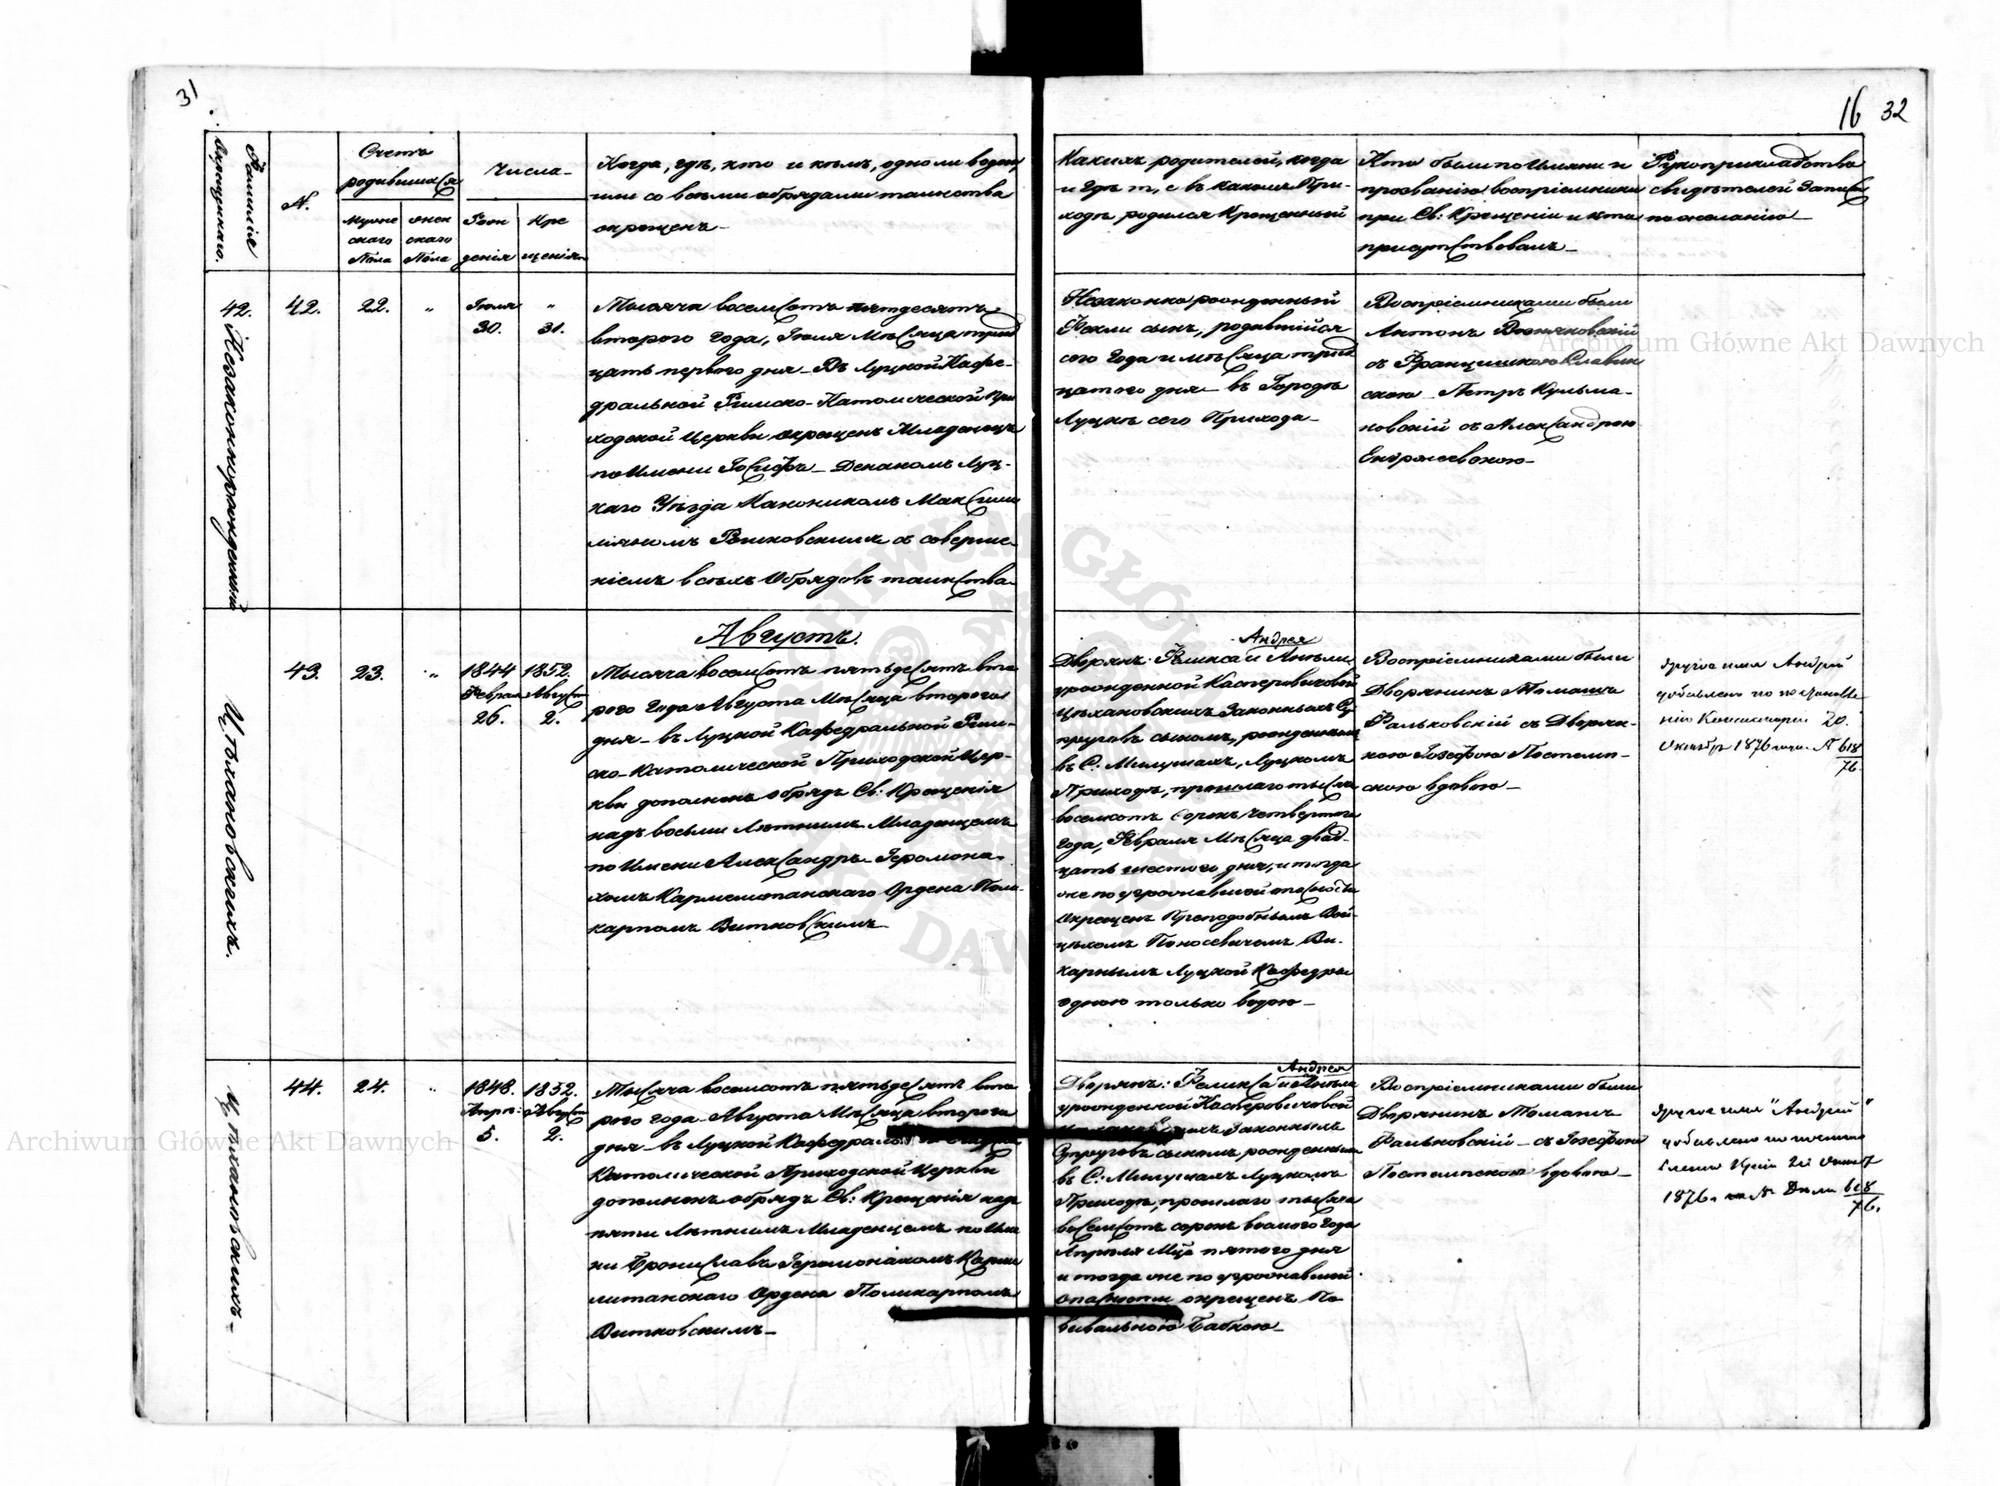 31
16 32
Фамилія
окрещеннаго.
N.
Счетъ
родившихся
мужескаго Пола
женскаго Пола
Числа
Рождения
Крещенія
Когда, гдѣ, кто и кѣмъ, одною ли водою,
или со всѣми обрядами таинства
окрещенъ
Какихъ родителей, когда
и гдѣ т. е въ какомъ При-
ходѣ родился Крещенный
Кто были по Имяни и
прозванію воспріемники
при Св: Крещеніи и кто
присутствовалъ
Рукоприкладства
свидѣтелей Записки
по желанію
42.
Незаконнорожденный
42.
22.
„
Іюля
30.
„
31.
Тысяча восемсотъ пятдесятъ
втораго года, Іюля Мѣсяца трид
цать перваго дня – Въ Луцкой Кафе-
дральной Римско-Католической При
ходской Церкви окрещенъ Младенецъ
по Имени Іосифъ – Деканомъ Луц-
каго Уѣзда Каноникомъ Максими
ліяномъ съ соверше-
ніемъ всѣхъ Обрядовъ таинства
Незаконно рожденный
Феклы сынъ, родившійся
сего Года и мѣсяца трид
цатаго дня въ Городѣ
Луцкѣ сего Прихода
Воспріемниками были
Антонъ
съ Францишкою Славин
скою Петръ Кульма-
новскій съ Александрою
Августъ.
Цѣхановскихъ.
43.
23.
„
1844
Феврал
26.
1852.
Август
2.
Тысяча восемсотъ пятьдесятъ вто
раго Года Августа Мѣсяца втораго
дня – въ Луцкой Кафедральной Рим-
ско-Католической Приходской Цер-
кви дополненъ обрядъ Св: Крещенія
надъ восьми Лѣтнимъ Младенцемъ
по Имени Александръ Іеромона-
хомъ Кармелитанскаго Ордена Поли-
карпомъ Витковскимъ
Андрея
Дворянъ Феликса и Анѣли
урожденной Касперовичовой
Цѣхановскихъ Законныхъ Су
пруговъ сыномъ, рожденнымъ
въ С: Милушахъ, Луцкомъ
Приходѣ, прошлаго тысяча
восемсотъ сорокъ четвертаго
Года, Февраля Мѣсяца двад-
цать шестаго дня, и тогда
же по угрожавшей опасности
окрещенъ Преподобнымъ Вой-
цѣхомъ Ви-
карнымъ Луцкой Кафедры
одною только водою
Воспріемниками были
Дворянинъ Томашъ
Фальковскій съ Дворян-
кою Іозефою
скою вдовою
другое имя Андрей
добавлено по постановле
нію Консисторіи 20.
Октябр 1876 года N 618/76.
Цѣхановскихъ
44.
24.
„
1848.
Апрѣ:
5.
1852.
Август
2.
Тысяча восемсотъ пятьдесятъ вто
раго года Августа Мѣсяца втораго
дня – въ Луцкой Кафедральной
Католической Приходской Церкви
дополненъ обрядъ Св: Крещенія надъ
пяти Лѣтнимъ Младенцемъ по Име
ни Брониславъ Іеромонахомъ Карме
литанскаго Ордена Поликарпомъ
Витковскимъ
Андрея
Дворянъ: Феликса и Анѣли
урожденной Касперовичовой
Законныхъ
Супруговъ сыномъ рожденнымъ
въ С: Милушахъ Луцкомъ
Приходѣ, прошлаго тысяча
восемсотъ сорокъ восмаго Года
Апрѣля Мца пятаго дня
и тогда же по угрожавшей
опасности окрещенъ По
вивальною Бабкою
Воспріемниками были
Дворянинъ Томашъ
Фальковскій – съ Іозефою
вдовою
другое имя "Андрей"
добавлено по
20 Октяб
1876 г. N Дѣла 618/76.
Archiwum Główne Akt Dawnych
Archiwum Główne Akt Dawnych
ARCHIWUM GŁÓWNE AKT DAWNYCH